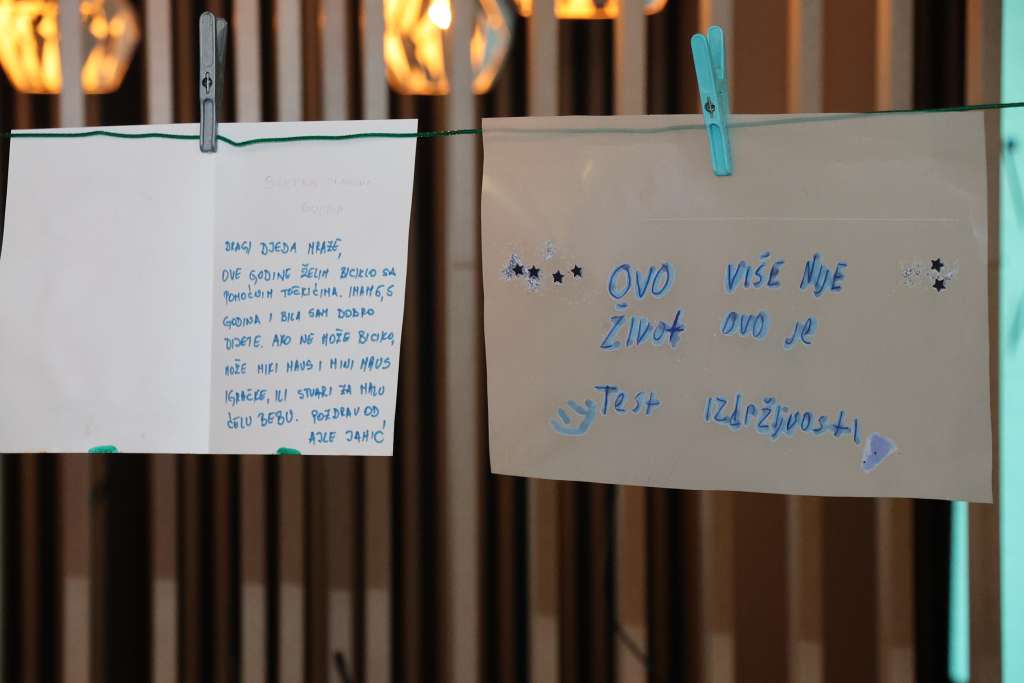 DRAGI DJEDA MRAZE,
OVE GODINE ŽELIM BICIKLO SA
POMOĆNIM TOČKIĆIMA. IMAM 6,5
GODINA I BILA SAM DOBRO
DIJETE. AKO NE MOŽE BICIKLO,
MOŽE MIKI MAUS I MINI MAUS
IGRAČKE, ILI STVARI ZA MALU
ĆELU BEBU. POZDRAV OD,
AJLE JAHIĆ
OVO VIŠE NIJE
ŽIVOT OVO je
Test izdržljvosti